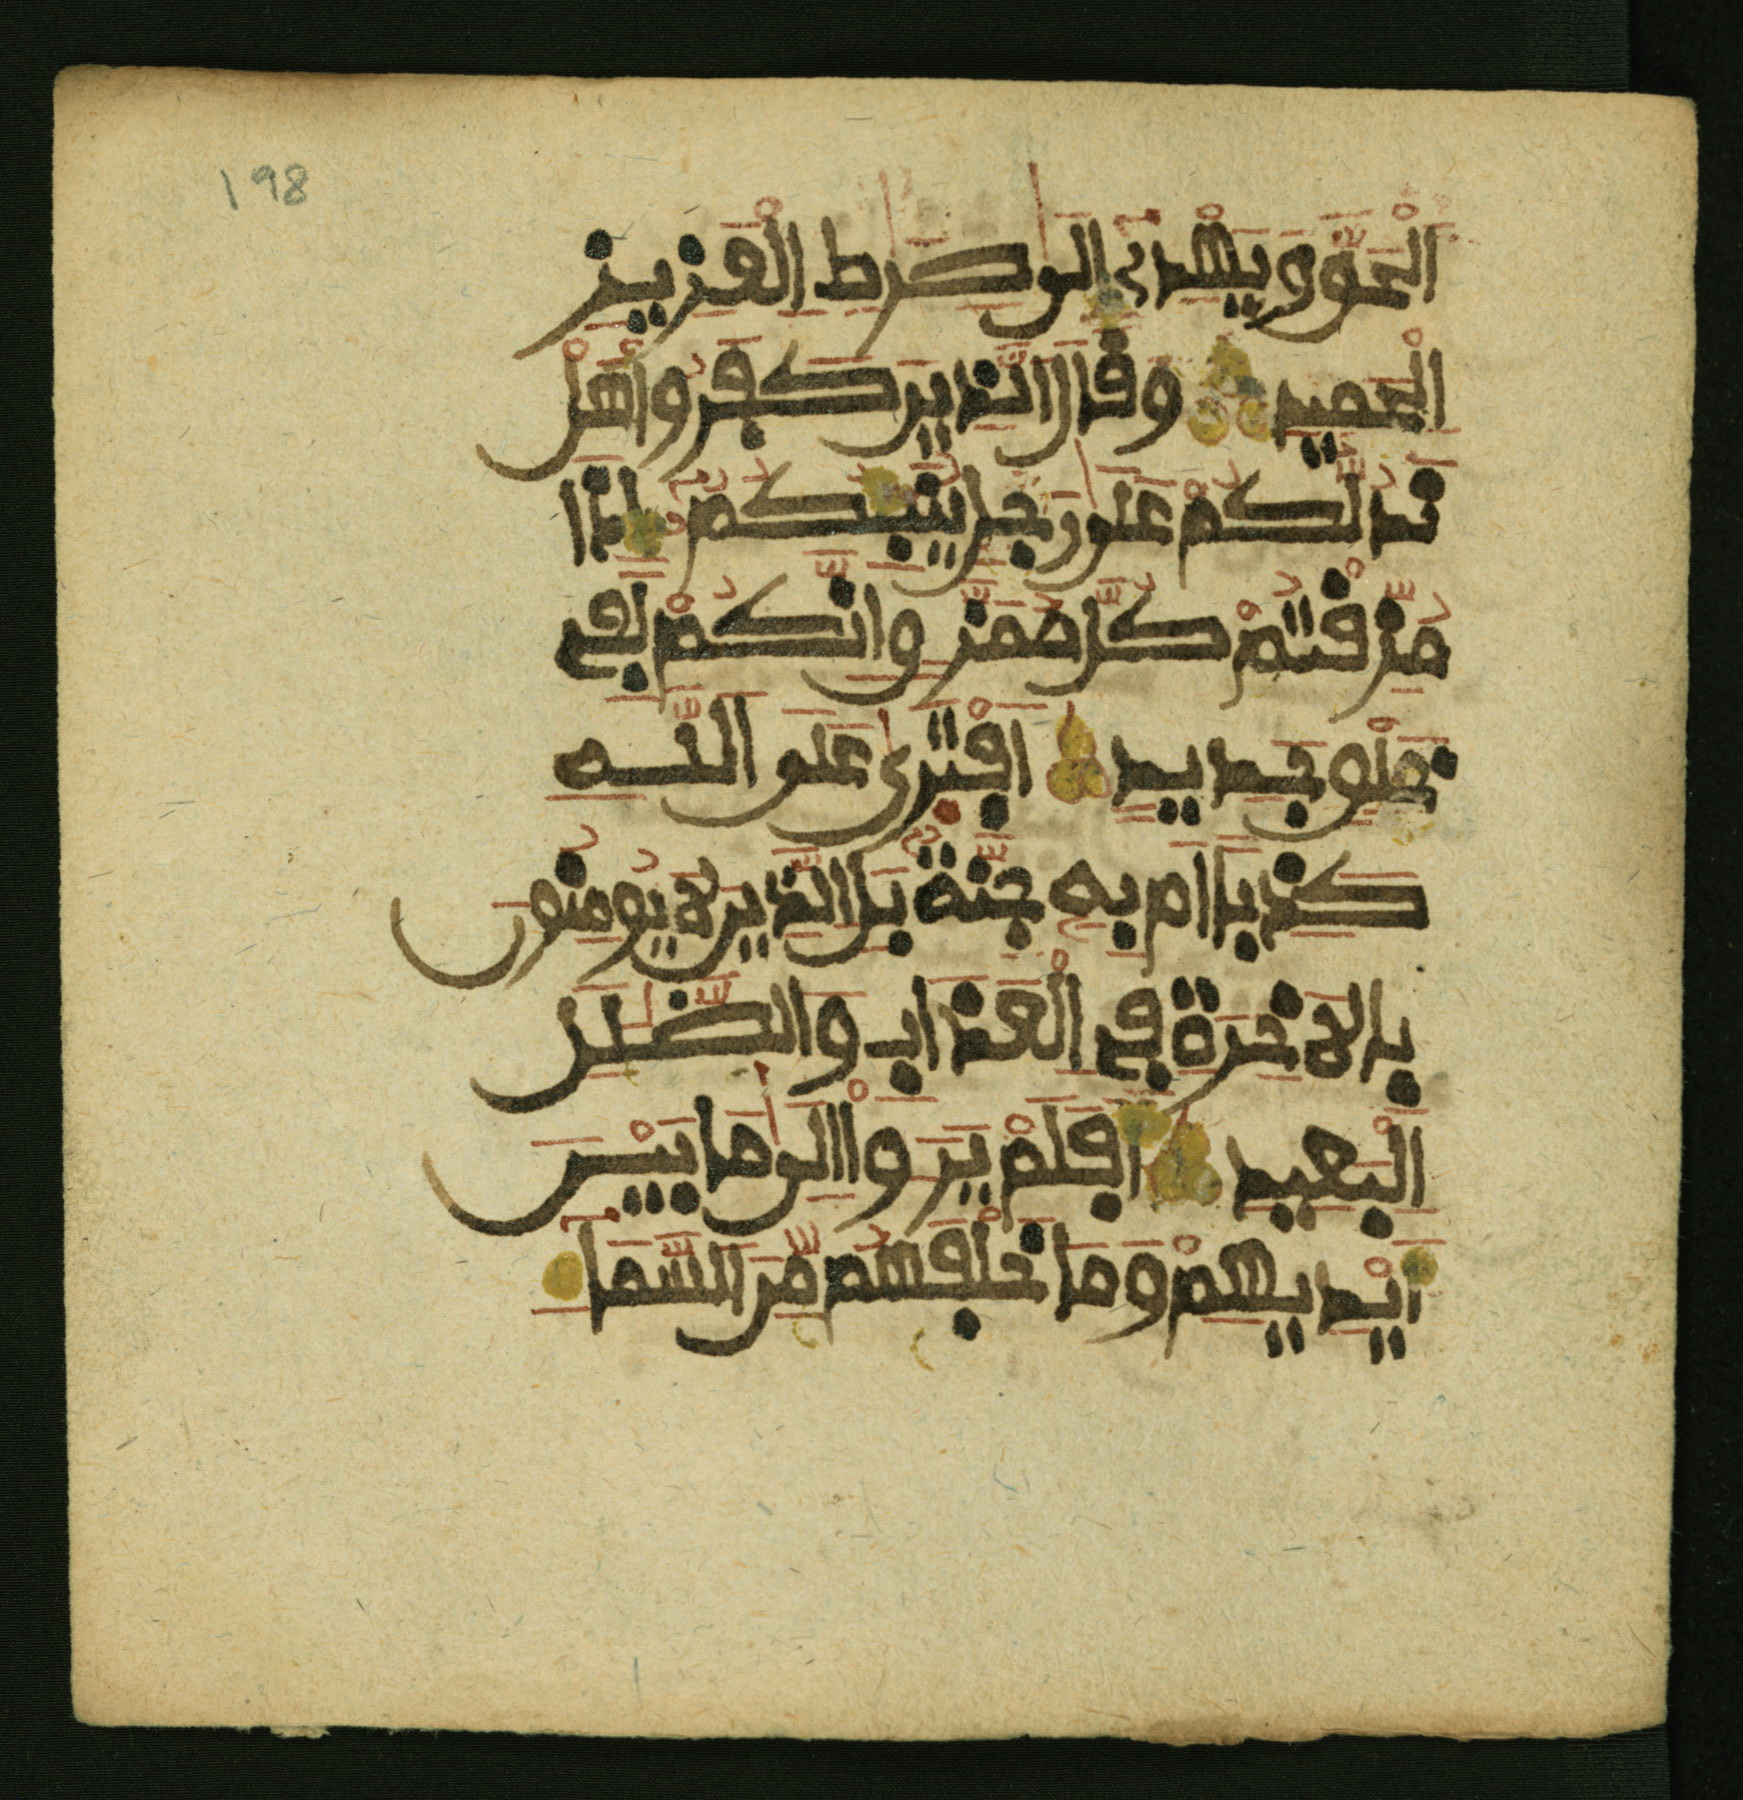 198
الحق ويهدى الى صرط العزيز
الحميد وقال الذين كفروا هل
ندلكم على رجل ينبئكم اذا
مزقتم كل ممزق وانكم لفى
خلق جديد افترى على الله
كذبا ام به جنة بل الذين لا يومنون
بالاخرة فى العذاب والضلل
البعيد افلم يروا الى ما بين
ايديهم وما خلفهم من السما